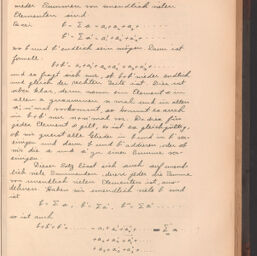 weder Summen von unendlich vielen
Elementen sind.
Es sei b = Σa = a₁ + a₂ + a₃ + ·
b' = Σa' = a'₁ + a'₂ + a'₃ + · · · ·
wo b und b' endlich sein mögen. Dann ist
formell:
b + b' = a₁ + a'₁ + a₂ + a'₂ + a₃ + a'₃ + · · · ·
und es fragt sich nur, ob b + b' wieder endlich
und gleich der rechten Seite ist. Dies ist
aber klar, denn wenn ein Element a in
allen a zusammen n mal und in allen
a' m mal vorkommt, so kommt es auch
in b + b' nur n + m mal vor. Da dies für
jedes Element a gilt, so ist es gleichgültig,
ob wir zuerst alle Glieder in b und in b' ver-
einigen und dann b und b' addieren oder ob
wir die a und a' zu einer Summe ver-
einigen.
Dieser Satz lässt sich auch auf unend-
lich viele Summanden, deren jeder die Summe
von unendlich vielen Elementen ist, aus-
dehnen. Haben wir unendlich viele b und
ist
b = Σa, b' = Σa', b'' = Σa'' · · · ·
so ist auch
b + b' + b'' + · · · · = a₁ + a₂ + a₃ + · · · = Σ a
+ a'₁ + a'₂ + a'₃ + · · ·
+ a''₁ + a''₂ + a''₃ + · · ·